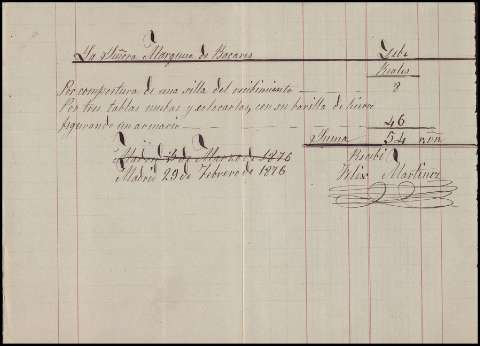 La Señora Marquesa de Bacares Debe
Reales
Por compostura de una silla del recibimiento 8
Por tres tablas nuebas y colocarlas, con su barilla de hierro
figurando un armario 46
Suma 54 rvn
Madrid 1º de Marzo de 1876
Recibí
Madrid 29 de Febrero de 1876
Felix Martinez